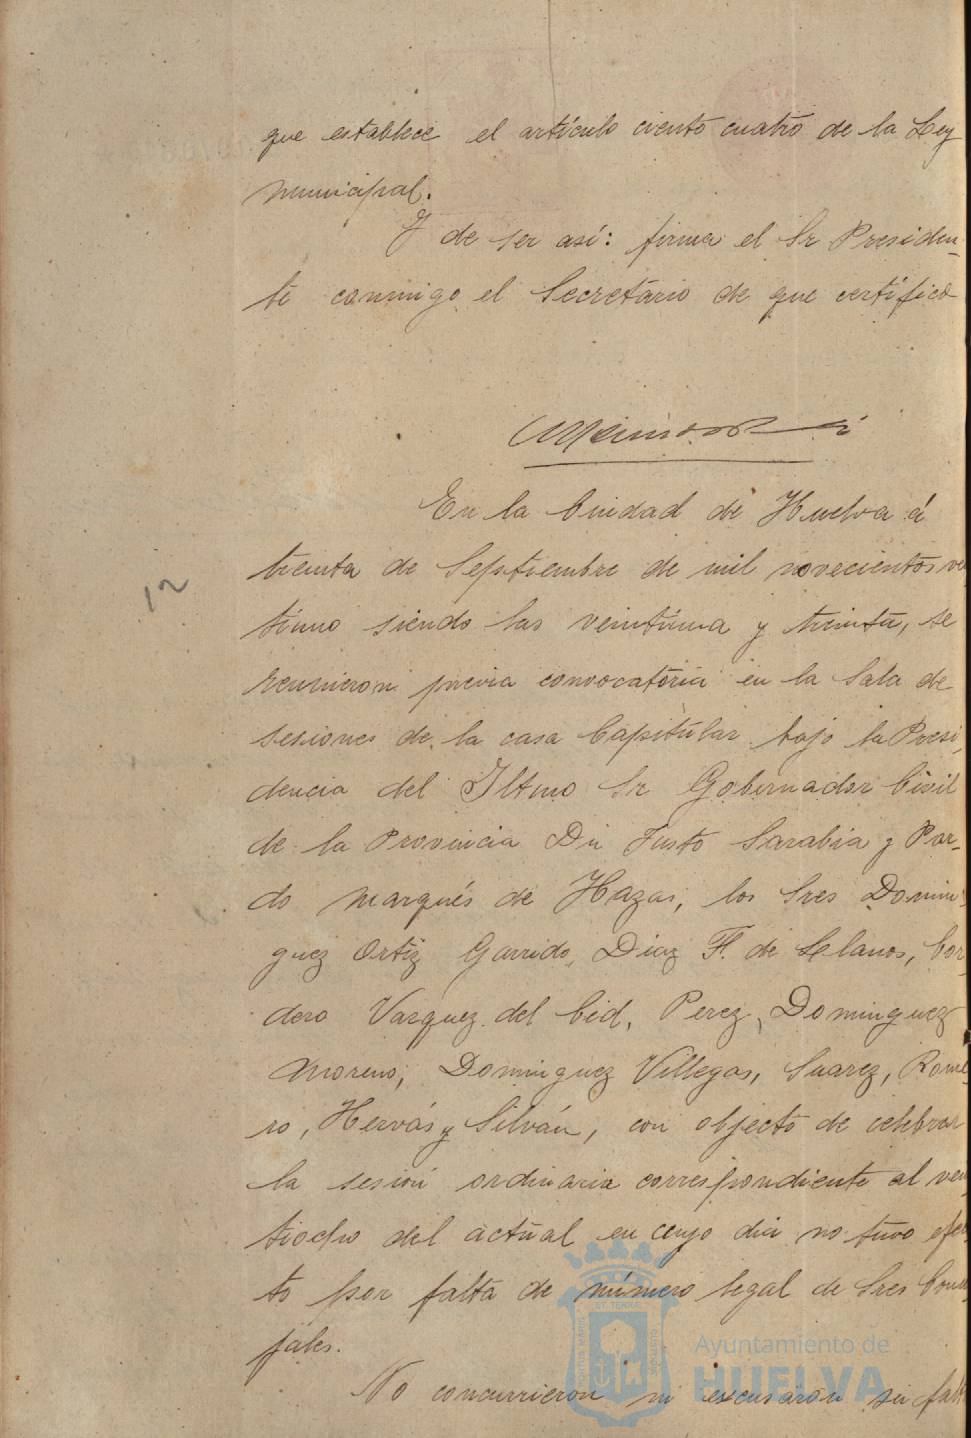 que establece el artículo ciento cuatro de la Ley
municipal.
Y de ser así: firma el Sr Presiden-
te conmigo el Secretario de que certifico
En la Ciudad de Huelva á
treinta de Septiembre de mil novecientos ve
tiuno siendo las veintiuna y treinta, se
reunieron previa convocatoria en la Sala de
sesiones de la casa Capitular bajo la Presi-
dencia del Iltmo Sr Gobernador Civil
de la Provincia Dn Justo Sarabia y Par-
do Marqués de Hazas, los Sres Domin-
guez Ortiz Garrido, Diaz F. de Llanos, Cor-
dero Vazquez del Cid, Perez, Dominguez
Moreno, Dominguez Villegas, Suarez, Rome-
ro, Hervás y Silván, con objecto de celebrar
la sesión ordinaria correspondiente al vein
tiocho del actual en cuyo dia no tuvo efec-
to por falta de número legal de Sres Conce
jales.
No concurrieron ni excusaron su falt
12
Ayuntamiento de
HUELVA